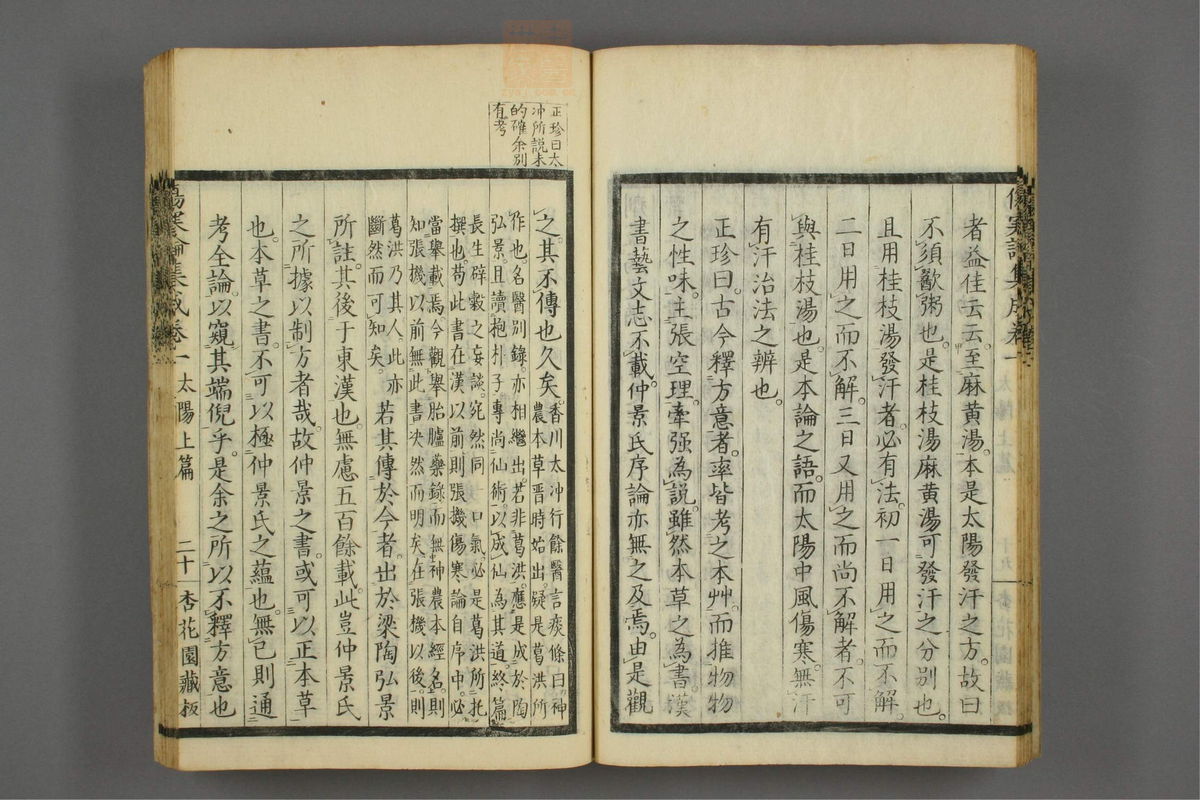 傷寒論集成卷一
者益佳云云。至麻黄湯。本是太陽發汗之方。故曰
不須歠粥也。是桂枝湯麻黄湯可發汗之分别也。
且用桂枝湯發汗者。必有法。初一日用之而不解。
二日用之而不解。三日又用之而尚不解者。不可
與桂枝湯也。是本論之語。而太陽中風傷寒。無汗
有汗治法之辨也。
正珍曰。古今釋方意者。率皆考之本艸。而推物物
之性味。主張空理。牽强為說。雖然本草之為書。漢
書藝文志不載。仲景氏序論亦無之及焉。由是觀
正珍曰太
冲所説未
的確余别
有考
之。其不傳也久矣。香川太冲行餘醫言痰條曰神
農本草晋時始出。疑是葛洪所
作也。名醫别錄。亦相繼出。若非葛洪。應是成於陶
弘景。且讀抱朴子。專尚仙術。以成仙為其道。終篇
長生辟穀之妄談。宛然同一口氣。必是葛洪所托
撰也。苟此書在漢以前。則張機傷寒論自序中。必
當舉載焉。今觀舉胎臚藥錄。而無神農本經名。則
知張機以前。無此書决然而明矣。在張機以後。則
葛洪乃其人。此亦
斷然而可知矣。若其傳於今者。出於梁陶弘景
所註。其後于東漢也。無慮五百餘載。此豈仲景氏
之所據以制方者哉。故仲景之書。或可以正本草
也。本草之書。不可以極仲景氏之蘊也。無已則通
考全論。以窺其端倪乎。是余之所以不釋方意也
傷寒論集成卷一 太陽上篇 二十 杏花園藏板